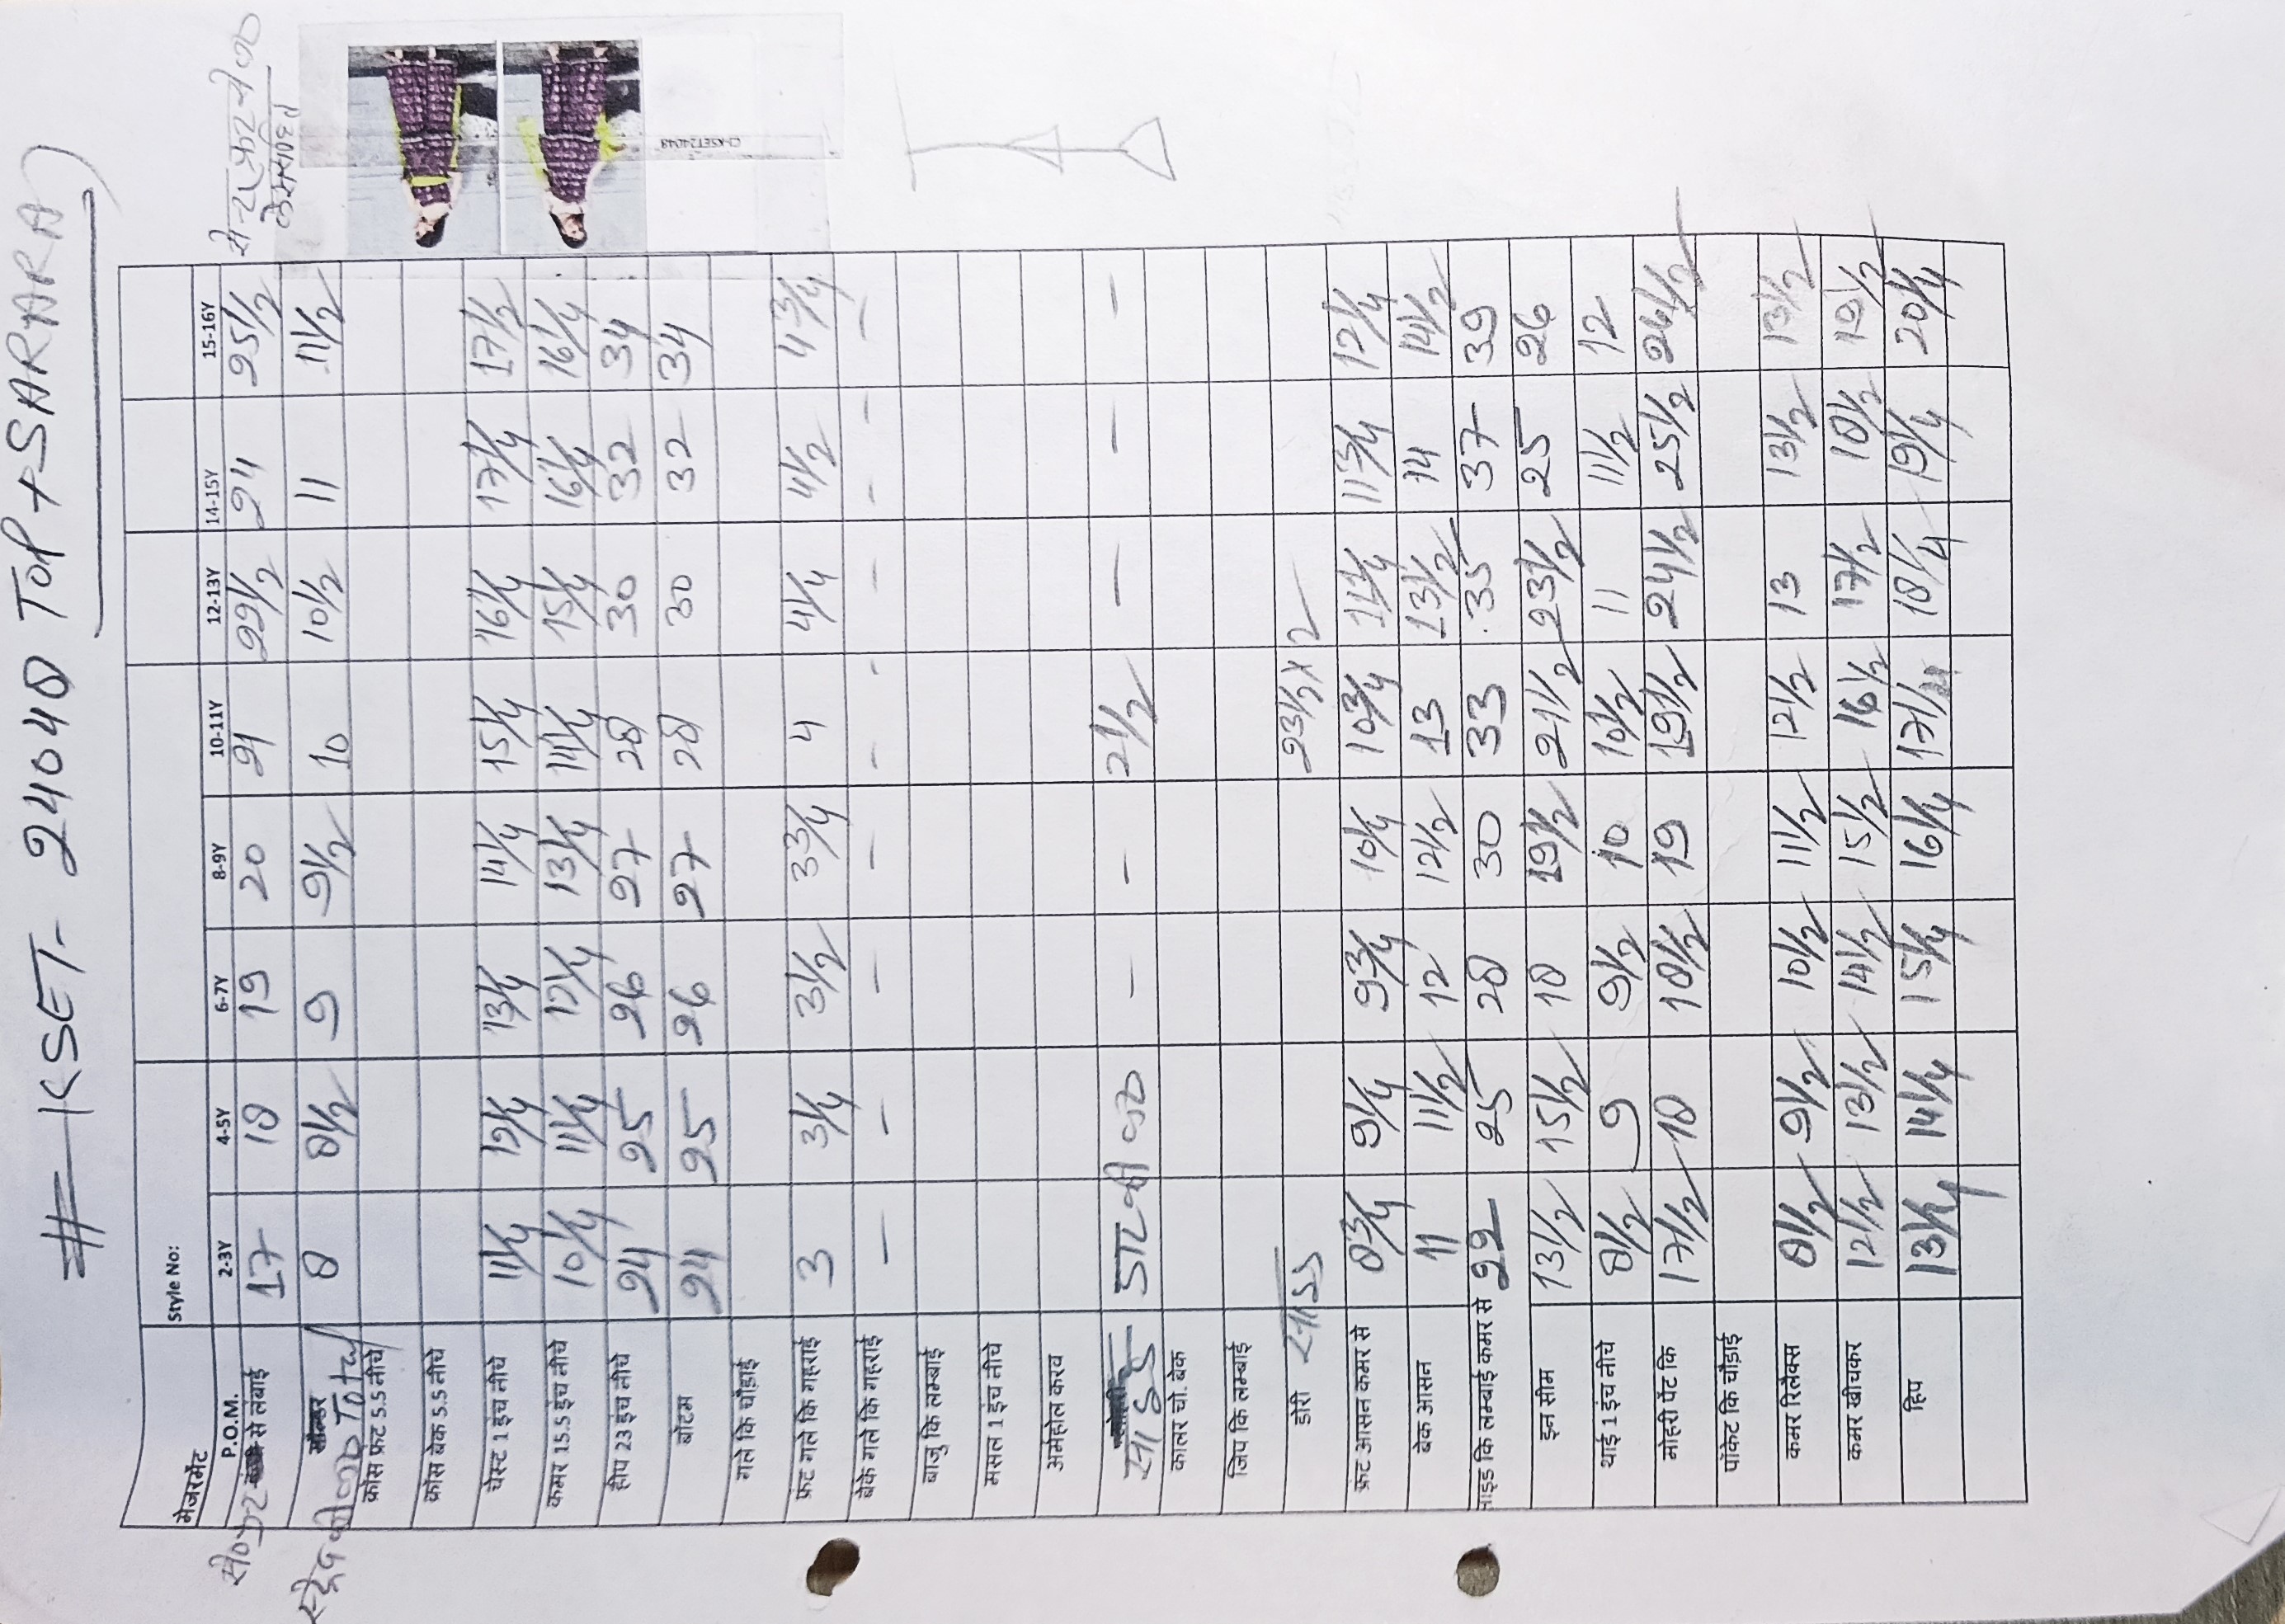 # KSET- 24048 TOP + SARARA
से-टर फ्रन्ट
CI-KSET24048
मेजरमेंट Style No:
P.O.M. 2-3Y 4-5Y 6-7Y 8-9Y 10-11Y 12-13Y 14-15Y 15-16Y
से लंबाई 17 18 19 20 21 22 1/2 24 25 1/2
Total 8 8 1/2 9 9 1/2 10 10 1/2 11 11 1/2
क्रॉस फ्रंट 5.5 नीचे
क्रॉस बेक 5.5 नीचे
चेस्ट 1 इंच नीचे 11 1/4 12 1/4 13 1/4 14 1/4 15 1/4 16 1/4 17 1/4 17 1/2
कमर 15.5 इंच नीचे 10 1/4 11 1/4 12 1/4 13 1/4 14 1/4 15 1/4 16 1/4 16 1/4
हीप 23 इंच नीचे 24 25 26 27 28 30 32 34
बॉटम 24 25 26 27 28 30 32 34
गले कि चौड़ाई
फ्रंट गले कि गहराई 3 3 1/4 3 1/2 3 3/4 4 4 1/4 4 1/2 4 3/4
बेके गले कि गहराई - - - - - - - -
बाजु कि लम्बाई
मसल 1 इंच नीचे
अर्महोल करव
साइड - - 2 1/2 - - -
कालर चो. बेक
जिप कि लम्बाई
डोरी साइड 23 1/2 x 2
फ्रंट आसन कमर से 8 3/4 9 1/4 9 3/4 10 1/4 10 3/4 11 1/4 11 3/4 12 1/4
बेक आसन 11 11 1/2 12 12 1/2 13 13 1/2 14 14 1/2
साइड कि लम्बाई कमर से 22 25 28 30 33 35 37 39
इन सीम 13 1/2 15 1/2 18 19 1/2 21 1/2 23 1/2 25 26
थाई 1 इंच नीचे 8 1/2 9 9 1/2 10 10 1/2 11 11 1/2 12
मोहरी पेंट कि 17 1/2 18 18 1/2 19 19 1/2 24 1/2 25 1/2 26 1/2
पॉकेट कि चौड़ाई
कमर रिलैक्स 8 1/2 9 1/2 10 1/2 11 1/2 12 1/2 13 13 1/2 13 1/2
कमर खीचकर 12 1/2 13 1/2 14 1/2 15 1/2 16 1/2 17 1/2 18 1/2
हिप 13 1/4 14 1/4 15 1/4 16 1/4 17 1/4 18 1/4 19 1/4 20 1/4